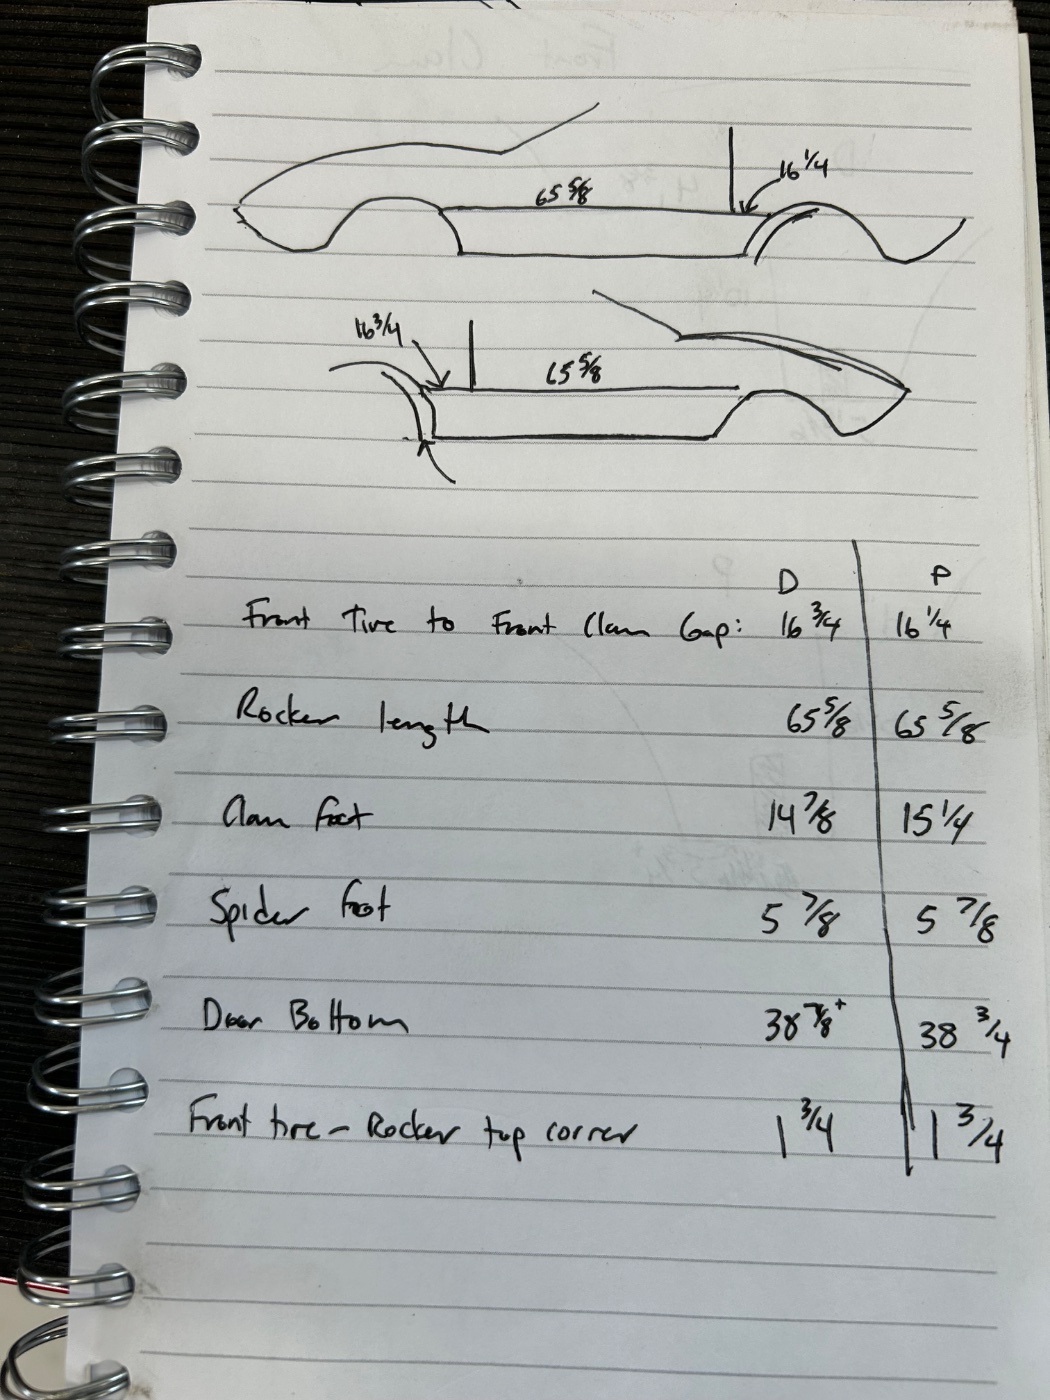 65 5/8
16 1/4
16 3/4
65 5/8
D P
Front Tire to Front Clam Gap: 16 3/4 16 1/4
Rocker length 65 5/8 65 5/8
Clam foot 14 7/8 15 1/4
Spider foot 5 7/8 5 7/8
Door Bottom 38 7/8+ 38 3/4
Front tire - Rocker top corner 1 3/4 1 3/4